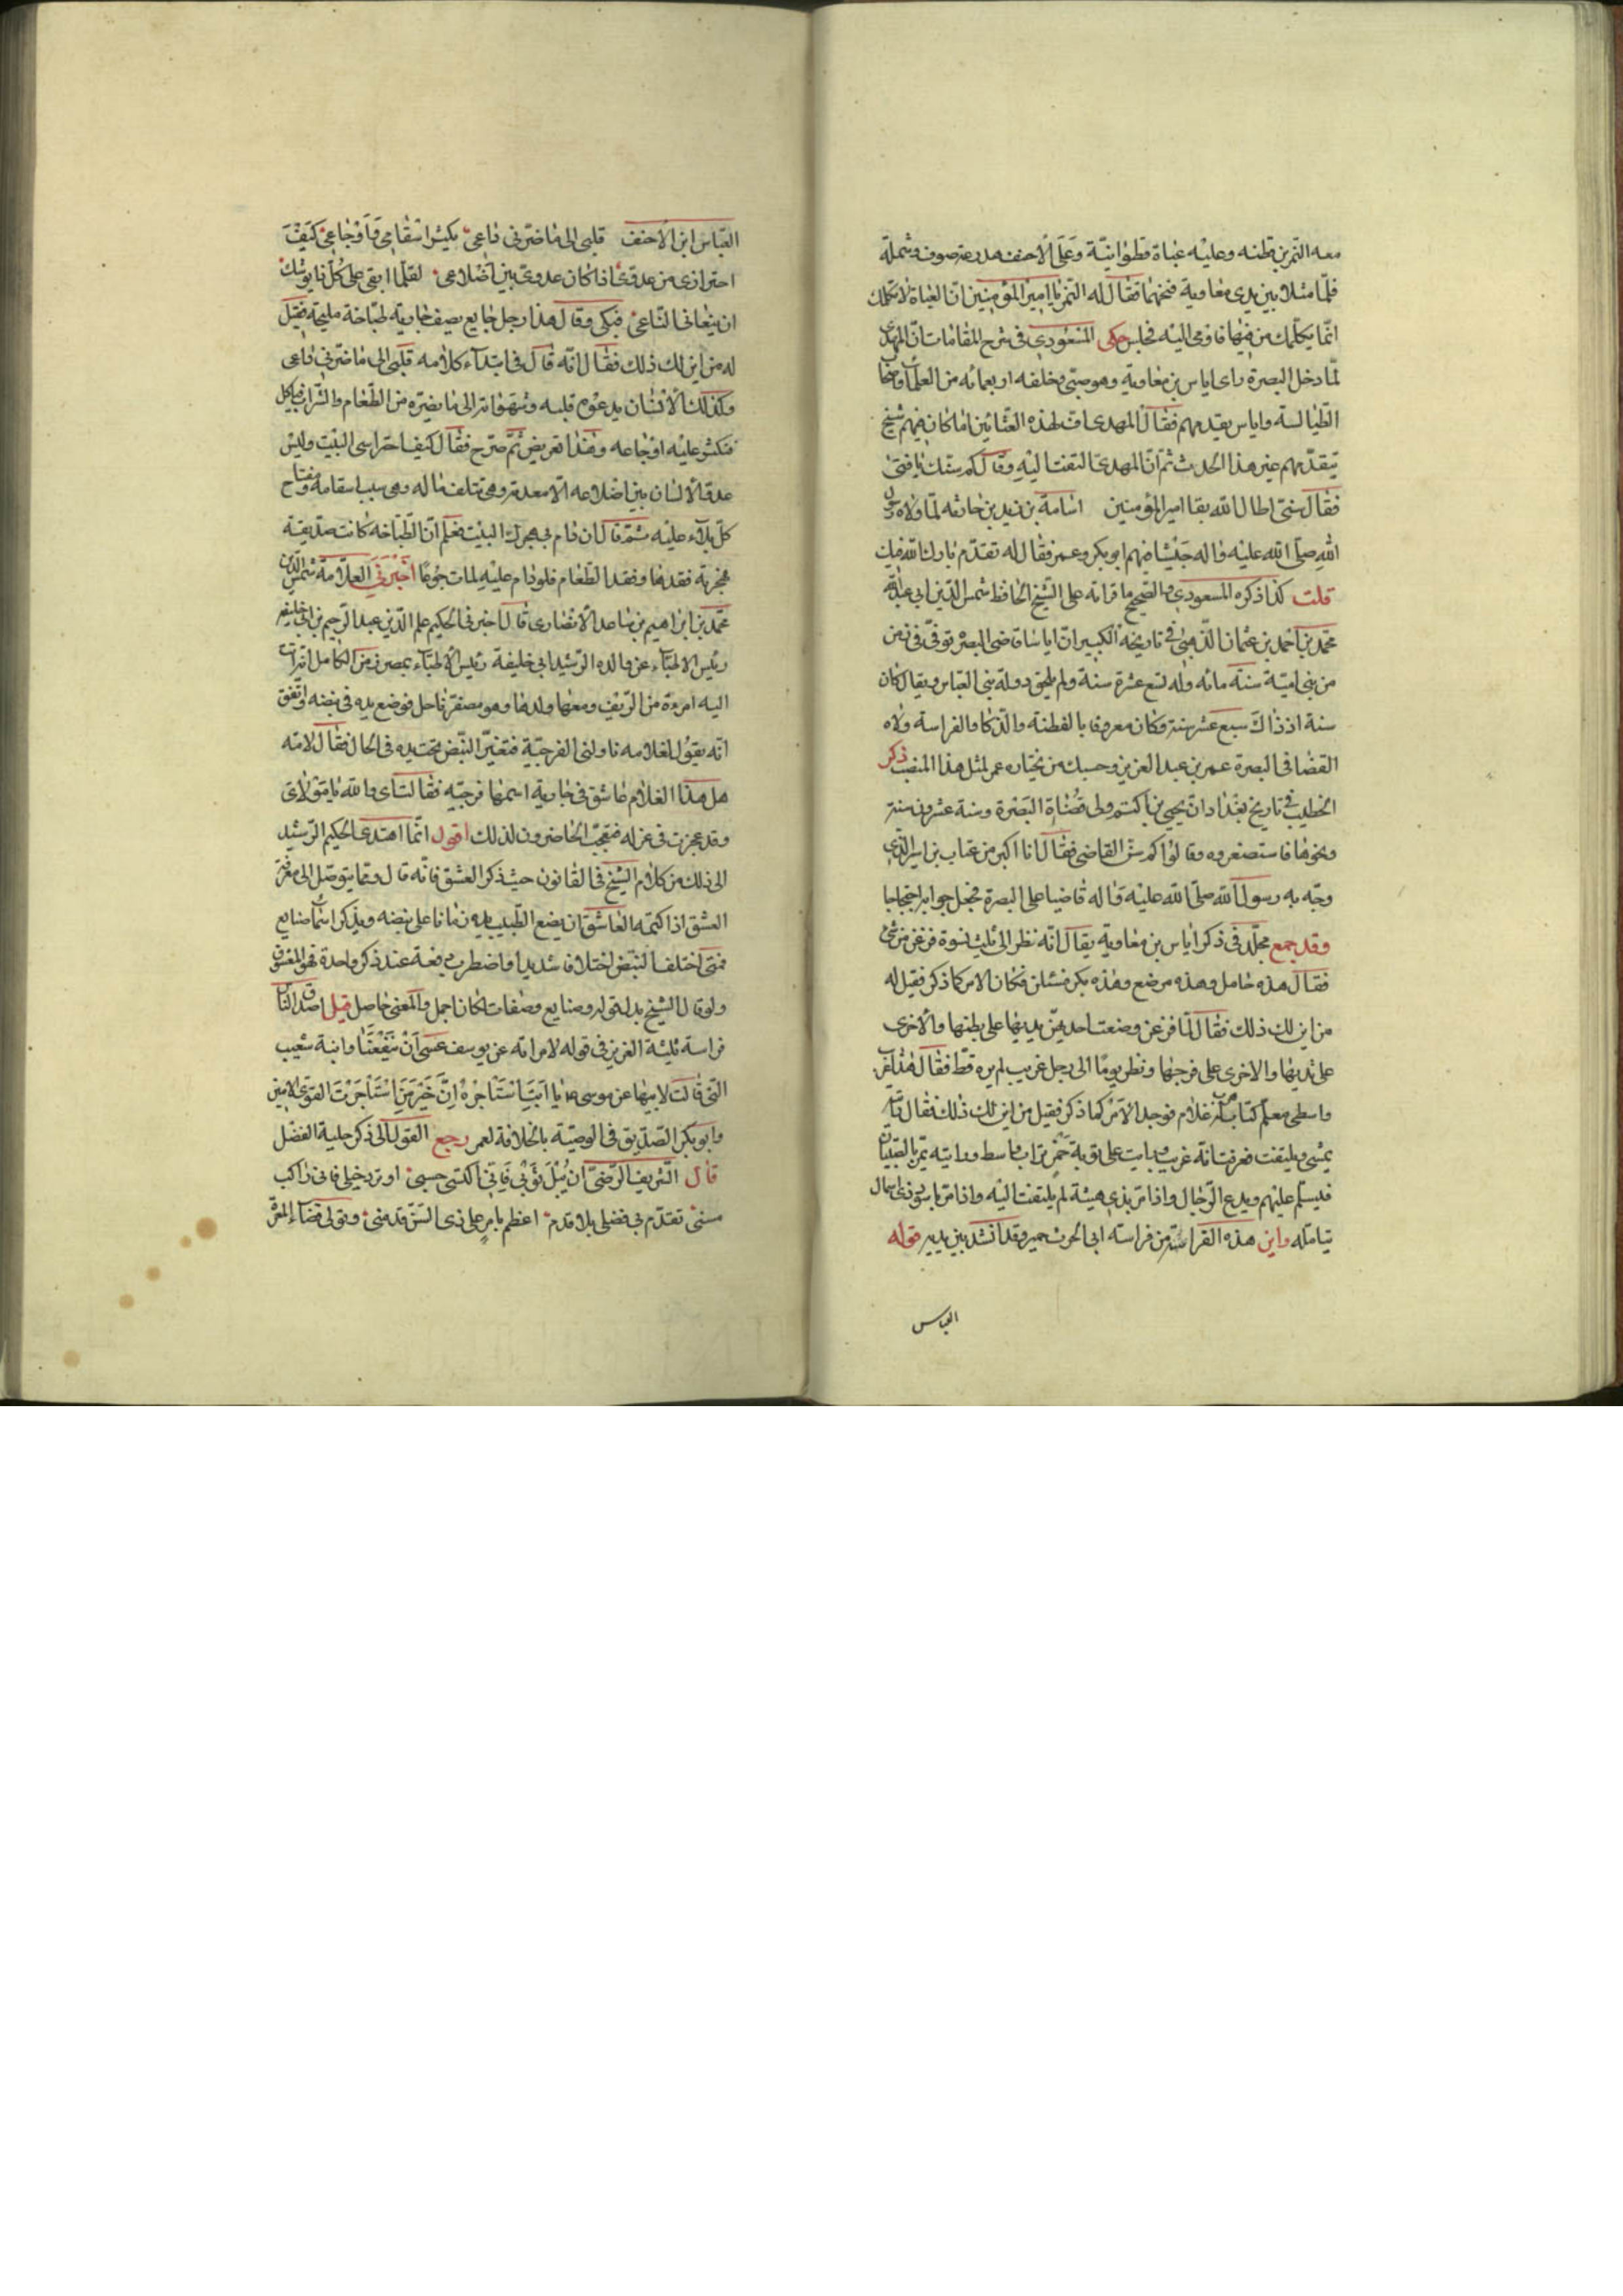 معه النمر بن قطنه وعليه عباة قطوانية وعلى الاحنف مدرعة صوف وشملة
فلما مثلا بين يدى معاوية فتحهما فقال له النمر يا امير المؤمنين ان العباة لا تكلمك
انما يكلمك من فيها فاومى اليه فجلس حكى المسعودى فى شرح المقامات ان المهدى
لما دخل البصرة راى اياس بن معاوية وهو صبى وخلفه اربعمائه من العلماء واصحاب
الطيالسة واياس يقدمهم فقال المهدى اف لهذه العثانين اما كان فيهم شيخ
يتقدمهم غير هذا الحدث ثم ان المهدى التفت اليه وقال كم سنك يا فتى
فقال سنى اطال الله بقا امير المؤمنين اسامة بن زيد بن حارثه لما ولاه رسول
الله صلى الله عليه واله جيشا فيهم ابو بكر وعمر فقال له تقدم بارك الله فيك
قلت كذا ذكره المسعودى والصحيح ما قراته على الشيخ الحافظ شمس الدين ابى عبد الله
محمد بن احمد بن عثمان الذهبى فى تاريخه الكبير ان اياسا قاضى البصره توفى فى زمن
من بنى امية سنة مائه وله تسع عشرة سنة ولم يلحق دولة بنى العباس ويقال كان
سنة اذ ذاك سبع عشر سنة وكان معروفا بالفطنة والذكا والفراسة ولاه
القضا فى البصرة عمر بن عبد العزيز وحسبك من يختاره عمر لمثل هذا المنصب ذكر
الخطيب فى تاريخ بغداد ان يحيى بن اكثم ولى قضاة البصرة وسنة عشرون سنة
ونحوها فاستصغروه وقالوا كم سن القاضى فقال انا اكبر من عتاب بن اسيد الذى
وجه به رسول الله صلى الله عليه واله قاضيا على البصرة فجعل جوابه احتجاجا
وقد جمع مجلد فى ذكر اياس بن معاوية يقال انه نظر الى ثلث نسوة فزعن من شئ
فقال هذه حامل وهذه مرضع وهذه بكر فسئلن فكان الامر كما ذكر فقيل له
من اين لك ذلك فقال لما فزعن وضعت احديهن يديها على بطنها والاخرى
على ثديها والاخرى على فرجها ونظر يوما الى رجل غريب لم يره قط فقال هذا غريب
واسطى معلم كتاب هرب له غلام فوجد الامر كما ذكر فقيل من اين لك ذلك فقال رايته
يمشى ويلتفت فعرفت انه غريب ورايت على ثوبه حمرة تراب واسط ورايته يمر بالصبيان
فيسلم عليهم ويدع الرجال واذا مر بذى هيئة لم يلتفت اليه واذا مر باسود ذى اسمال
تامله واين هذه الفراسة من فراسة ابى الحرث حمير وقد انشد بين يديه قوله
العباس
العباس ابن الاحنف قلبى الى ما ضرنى داعى يكثر اسقامى واوجاعى كيف
احترازى من عدوى اذا كان عدوى بين اضلاعى لقلما ابقى على كل ذا يوشك
ان ينعانى الناعى فبكى وقال هذا رجل جايع يصف جارية طباخة مليحة فقيل
له من اين لك ذلك فقال انه قال فى ابتداء كلامه قلبى الى ما ضرنى داعى
وكذلك الانسان يدعوه قلبه وشهواته الى ما يضره من الطعام والشراب فياكل
فتكثر عليه اوجاعه وهذا تعريض ثم صرح فقال كيف احتراسى البيت وليس
عدو الانسان بين اضلاعه الا معدته وهى تتلف ماله وهى سبب اسقامه ومفتاح
كل بلاء عليه ثم قال ان دام بى هجرك البيت فعلم ان الطباخه كانت صديقة
مجربة فقدها وفقد الطعام فلو دام عليه لمات جوعا اخبرنى العلامة شمس الدين
محمد بن ابراهيم بن ساعد الانصارى قال اخبرنى الحكيم علم الدين عبد الرحيم بن ابى خليفه
رئيس الاطباء عن والده الرشيد ابى خليفة رئيس الاطباء بمصر فى زمن الكامل انه اتت
اليه امرءة من الريف ومعها ولدها وهو مصفر ناحل فوضع يده فى نبضه واتفق
انه يقول لغلامه ناولنى الفرجية فتغير النبض تحت يده فى الحال فقال لامه
هل هذا الغلام عاشق فى جارية اسمها فرجيه فقالت اى والله يا مولاى
وقد عجزت فى عزله فتعجب الحاضرون لذلك اقول انما اهتدى الحكيم الرشيد
الى ذلك من كلام الشيخ فى القانون حيث ذكر العشق فانه قال ومما يتوصل الى معرفة
العشق اذا كتمه العاشق ان يضع الطبيب يده زمانا على نبضه ويذكر اسما صنايع
فمتى اختلف النبض اختلافا شديدا واضطرب دفعة عند ذكر واحدة فهو المعشوق
ولو قال الشيخ بدل قوله وصنايع وصفات لكان اجمل والمعنى حاصل قيل اصدق الناس
فراسة ثلثة العزيز فى قوله لامراته عن يوسف عسى ان ينفعنا وابنة شعيب
التى قالت لابيها عن موسى يا ابت استاجره ان خير من استاجرت القوى الامين
وابو بكر الصديق فى الوصية بالخلافة لعمر رجع القول الى ذكر حلية الفضل
قال الشريف الرضى ان يبل ثوبى فانى اكتسى حسبى او ترد خيلى فانى راكب
سنى تقدم بى فضلى بلا قدم اعظم بامر على ذى السن قدمنى وتولى قضاء المعرة